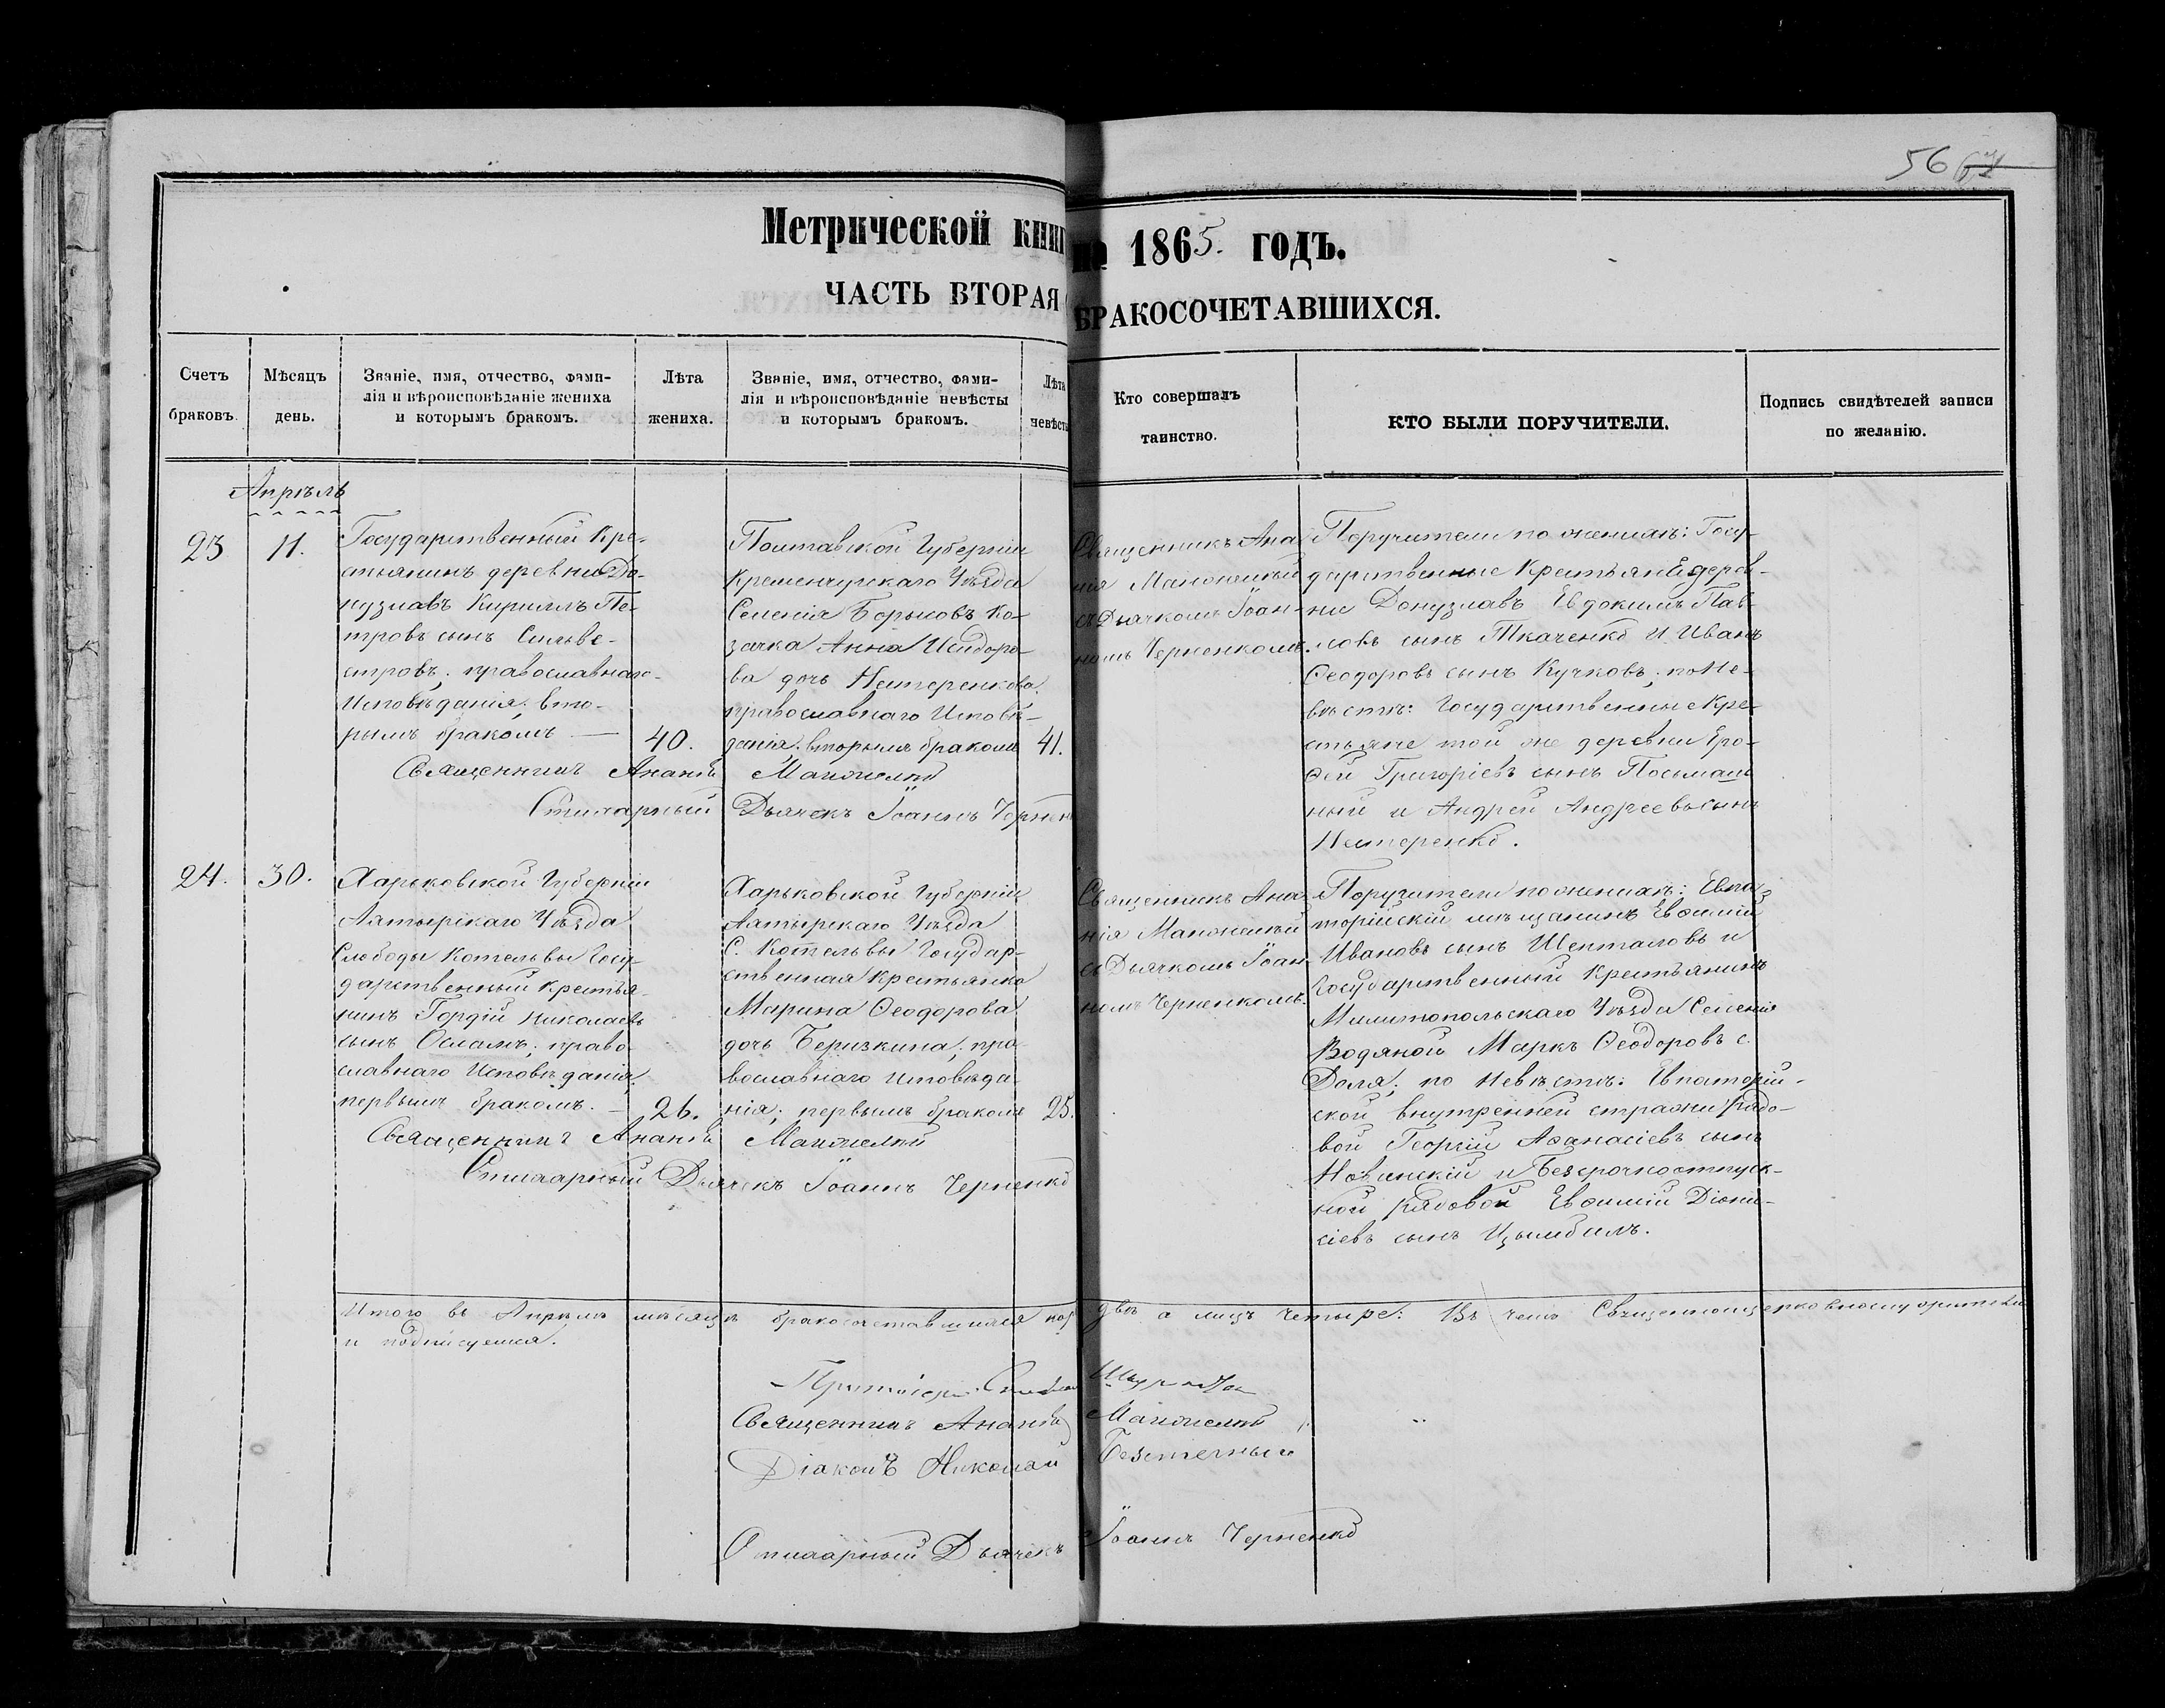 56
Метрической книг на 1865. годъ.
ЧАСТЬ ВТОРАЯ БРАКОСОЧЕТАВШИХСЯ.
Счетъ браковъ.
Мѣсяцъ день.
Званіе, имя, отчество, фами-
лія и вѣроисповѣданіе жениха
и которымъ бракомъ.
Лѣта
жениха.
Званіе, имя, отчество, фами-
лія и вѣроисповѣданіе невѣсты
и которымъ бракомъ.
Лѣта
невѣсты
Кто совершалъ
таинство.
КТО БЫЛИ ПОРУЧИТЕЛИ.
Подпись свидѣтелей записи
по желанію.
Апрѣль
23
11.
Государственный Кре-
стьянинъ деревни До-
нузлавъ Кириллъ Пе-
тровъ сынъ Сильве-
стровъ; православнаго
Исповѣданія; вто-
рымъ бракомъ —
40.
Полтавской Губерніи
Кременчугскаго Уѣзда
Селенія Борысовъ Ко-
зачка Анна Исидоро-
ва дочь Нестеренкова,
православнаго Исповѣ-
данія; вторымъ бракомъ
41.
Священникъ Ана
нія Маножелій
съ Дьячкомъ Іоан-
номъ Черненкомъ.
Поручители по женихѣ: Госу-
дарственные Крестьяне дерев-
ни Донузлавъ Евдокимъ Пав-
ловъ сынъ Ткаченко и Иванъ
Ѳеодоровъ сынъ Кучковъ; по Не-
вѣстѣ: Государственные Кре-
стьяне той же деревни Еро-
фей Григоріевъ сынъ
и Андрей Андреевъ сынъ
Нестеренко.
Священникъ Ананій
Стихарный Дьячекъ Іоаннъ Чернен
24.
30.
Харьковской Губерніи
Ахтырскаго Уѣзда
Слободы Котельвы Госу-
дарственный Крестья-
нинъ Гордій Николаевъ
сынъ православнаго Исповѣданія,
первымъ бракомъ. —
26.
Харьковской Губерніи
Ахтырскаго Уѣзда
С. Котельвы Государ-
ственная Крестьянка
Марина Ѳеодорова
дочь Беризкина; пра-
вославнаго Исповѣда-
нія; первымъ бракомъ
25.
Священникъ Ана
нія Маножелій
съ Дьячкомъ Іоан-
номъ Черненкомъ.
Поручители по женихѣ: Евпа-
торійскій мѣщанинъ Евѳимій
Ивановъ сынъ Шепталовъ и
Государственный Крестьянинъ
Мелитопольскаго Уѣзда Селенія
Водяной Маркъ Ѳеодоровъ с.
Доля; по Невѣстѣ: Евпаторій-
ской внутренней стражи Рядо-
вой Георгій Аѳанасіевъ сынъ
и Безсрочноотпуск-
ной Рядовой Евѳимій Діони-
сіевъ сынъ Цымбалъ.
Священникъ Ананій
Стихарный Дьячекъ Іоаннъ Черненко
Итого въ Апрѣлѣ мѣсяцѣ бракосочетавшихся два а лицъ четыре: Въ чемъ
и подписуемся.
Протоіерей
Священникъ Ананій
Діаконъ Николай Безтечный
Стихарный Дьячекъ Іоаннъ Черненко